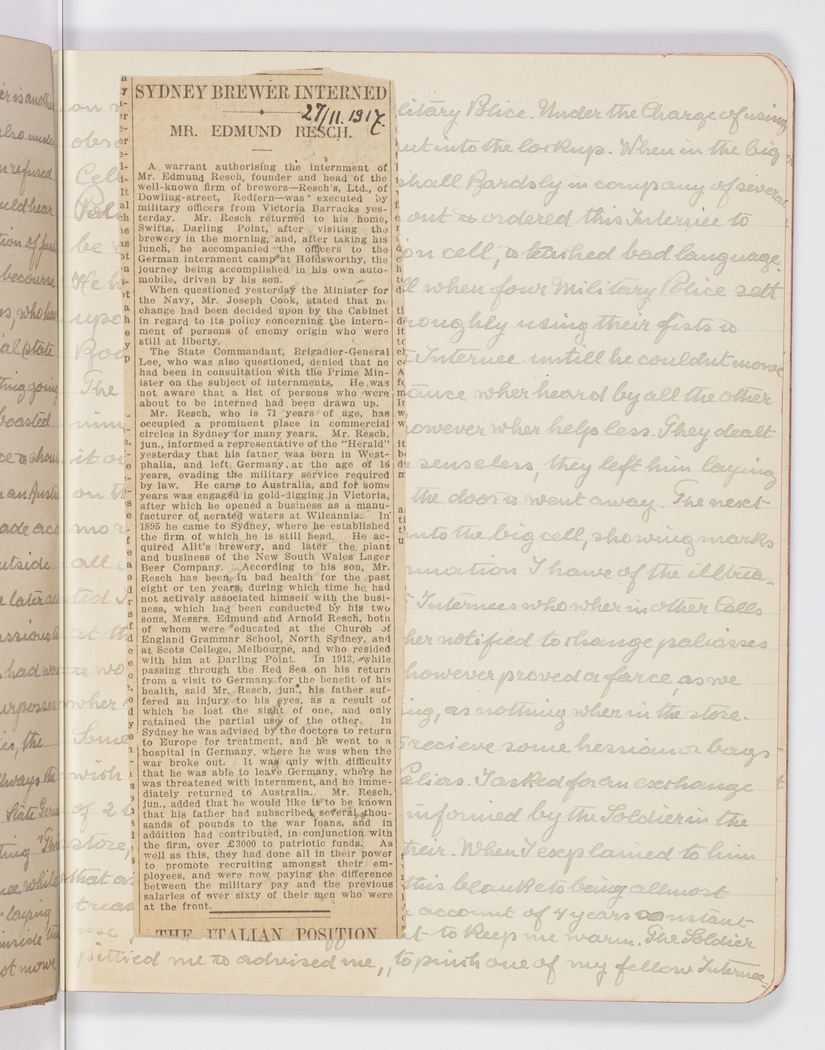 SYDNEY BREWER INTERNED
27/11.1917.
MR. EDMUND RESCH.
A warrant authorising the internment of
Mr. Edmund Resch, founder and head of the
well-known firm of brewers—Resch's, Ltd., of
Dowling-street, Redfern—was executed by
military officers from Victoria Barracks yes-
terday. Mr. Resch returned to his home,
Swifts, Darling Point, after visiting the
brewery in the morning, and, after taking his
lunch, he accompanied the officers to the
German internment camp at Holdsworthy, the
journey being accomplished in his own auto-
mobile, driven by his son.
When questioned yesterday the Minister for
the Navy, Mr. Joseph Cook, stated that no
change had been decided upon by the Cabinet
in regard to its policy concerning the intern-
ment of persons of enemy origin who were
still at liberty.
The State Commandant, Brigadier-General
Lee, who was also questioned, denied that he
had been in consultation with the Prime Min-
ister on the subject of internments. He was
not aware that a list of persons who were
about to be interned had been drawn up.
Mr. Resch, who is 71 years of age, has
occupied a prominent place in commercial
circles in Sydney for many years. Mr. Resch,
jun., informed a representative of the "Herald"
yesterday that his father was born in West-
phalia, and left Germany at the age of 16
years, evading the military service required
by law. He came to Australia, and for some
years was engaged in gold-digging in Victoria,
after which he opened a business as a manu-
facturer of aerated waters at Wilcannia. In
1895 he came to Sydney, where he established
the firm of which he is still head. He ac-
quired Allt's brewery, and later the plant
and business of the New South Wales Lager
Beer Company. According to his son, Mr.
Resch has been in bad health for the past
eight or ten years, during which time he had
not actively associated himself with the busi-
ness, which had been conducted by his two
sons, Messrs. Edmund and Arnold Resch, both
of whom were educated at the Church of
England Grammar School, North Sydney, and
at Scots College, Melbourne, and who resided
with him at Darling Point. In 1913, while
passing through the Red Sea on his return
from a visit to Germany for the benefit of his
health, said Mr. Resch, jun., his father suf-
fered an injury to his eyes, as a result of
which he lost the sight of one, and only
retained the partial use of the other. In
Sydney he was advised by the doctors to return
to Europe for treatment, and he went to a
hospital in Germany, where he was when the
war broke out. It was only with difficulty
that he was able to leave Germany, where he
was threatened with internment, and he imme-
diately returned to Australia. Mr. Resch,
jun., added that he would like it to be known
that his father had subscribed several thou-
sands of pounds to the war loans, and in
addition had contributed, in conjunction with
the firm, over £3000 to patriotic funds. As
well as this, they had done all in their power
to promote recruiting amongst their em-
ployees, and were now paying the difference
between the military pay and the previous
salaries of over sixty of their men who were
at the front.
THE ITALIAN POSITION
litary Police. Under the Charge of using
put into the lockup. When in the big
shall Bardsly in company of several
out & ordered this Internee to
on cell, & teashed bad language.
ll when four Military Police sett
roughly using their fists &
Internee untill he couldnt move
tance wher heard by all the other
however wher helpless. They dealt
senseless, they left him laying
the door & went away. The next
into the big cell, showing marks
mation I have of the illtrea-
Internees who wher in other Cells
her notified to change paliasses
however proved a farce, as we
ing, as nothing wher in the store.
recieve some hessian or bags
elias. I asked for an exchange
informed by the Soldier in the
their. When I explained to him
this blankets being allmost
account of 4 years constant
to keep me warm. The Soldier
pittied me & advised me, to pinsh one of my fellow Internee